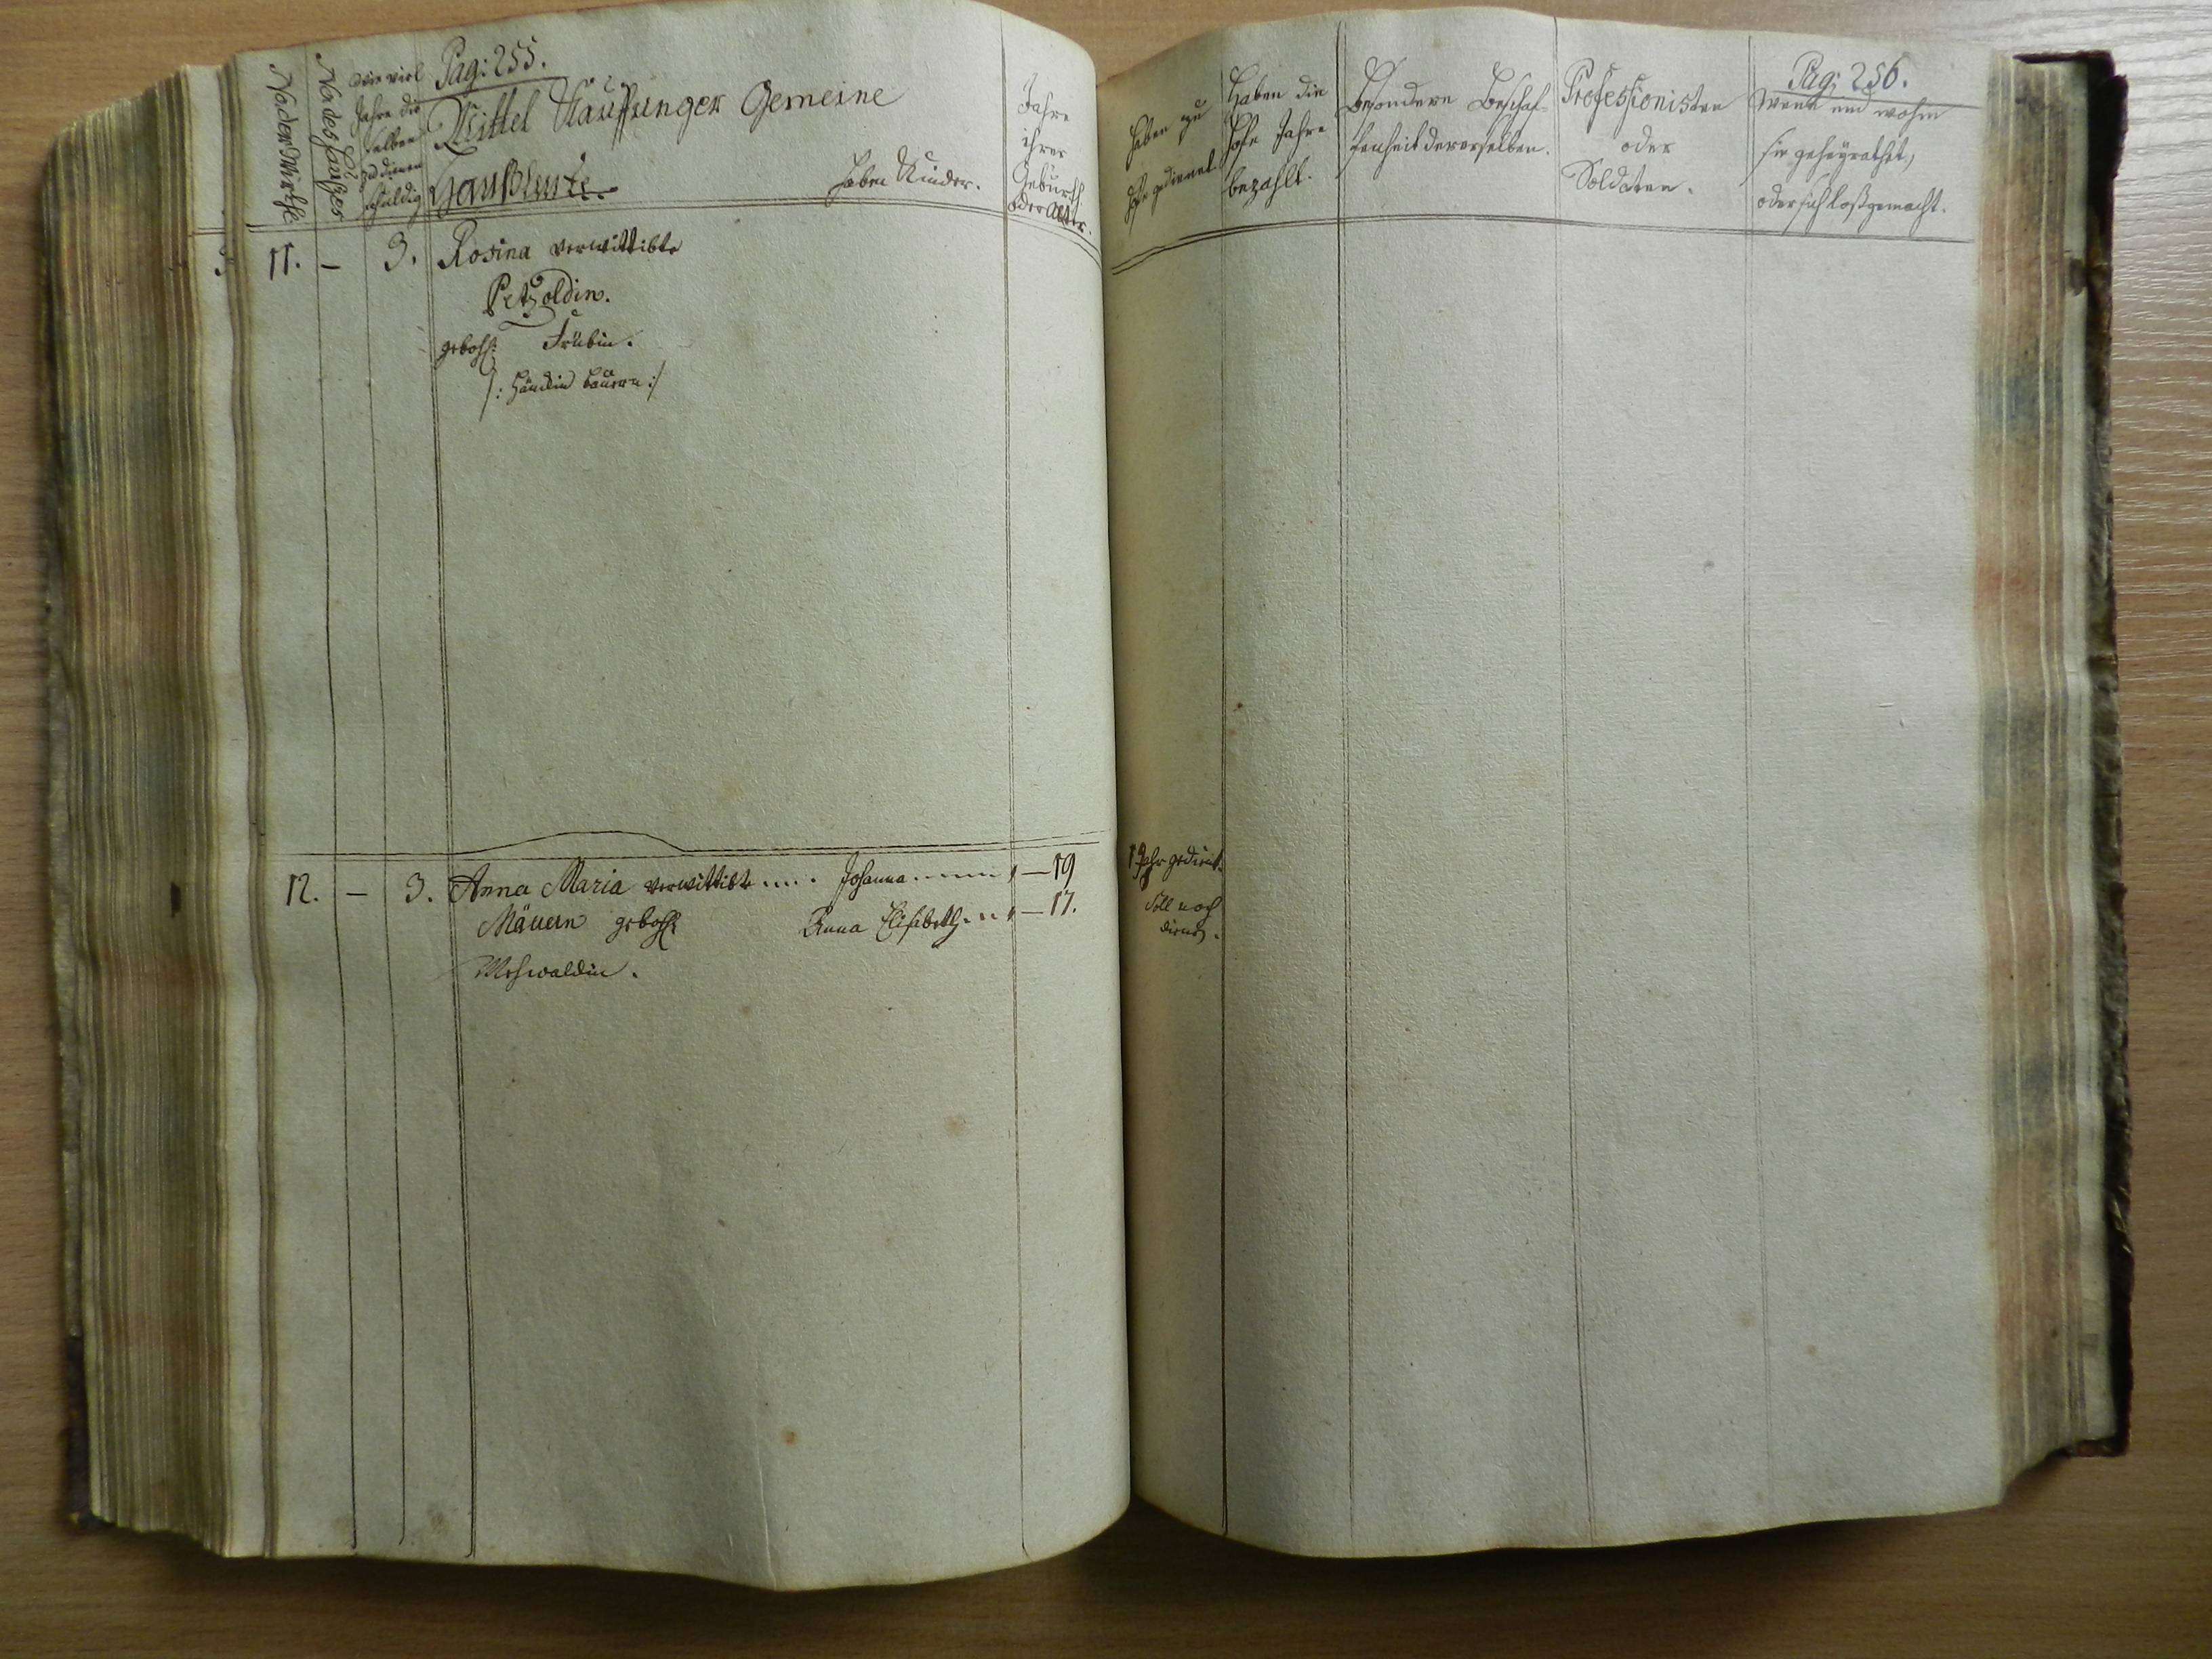 Pag: 255.
No der Wirthe
No des Hauses
Wie viel
Jahre die
selben
zu dienen
schuldig
Mittel Kauffunger Gemeine
Haußleute.
Haben Kinder.
Jahre
ihrer
Geburth
oder Alter.
11. – 3. Rosina verwittibte
Petzoldin.
gebohr:
12. – 3. Anna Maria verwittibte Johanna — 19
Mäuern gebohr: Anna Elisabeth — 17.
Meßwaldin.
Pag: 256.
Haben zu
Hofe gedienet
Haben die
Hofe Jahre
bezahlt.
Besondere Beschaf-
fenheit dererselben.
Professionisten
oder
Soldaten.
Wenn und wohin
sie geheÿrathet,
oder sich loßgemacht.
1 Jahr gedient.
soll noch
dienen.